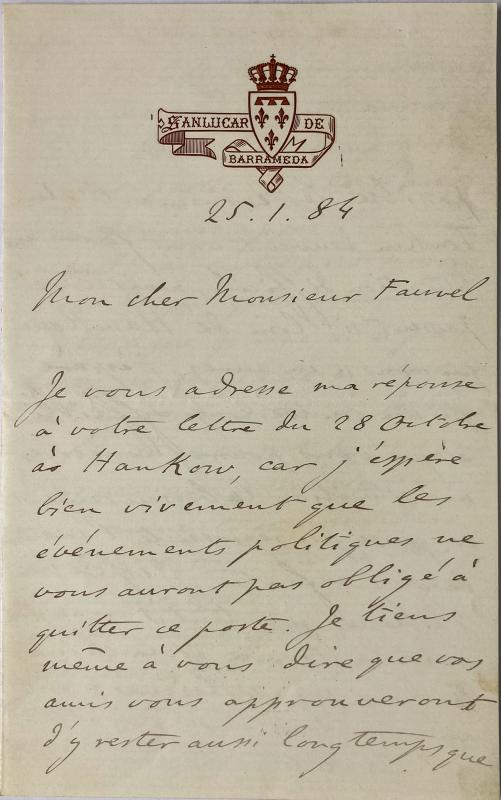 SANLUCAR DE
BARRAMEDA
25.1.84
Mon cher Monsieur Fauvel
Je vous adresse ma réponse
à votre lettre du 28 Octobre
à HanKow, car j'éspère
bien vivement que les
événements politiques ne
vous auront pas obligé à
quitter ce poste. Je tiens
même à vous dire que vos
amis vous approuveront
d'y rester aussi longtemps que